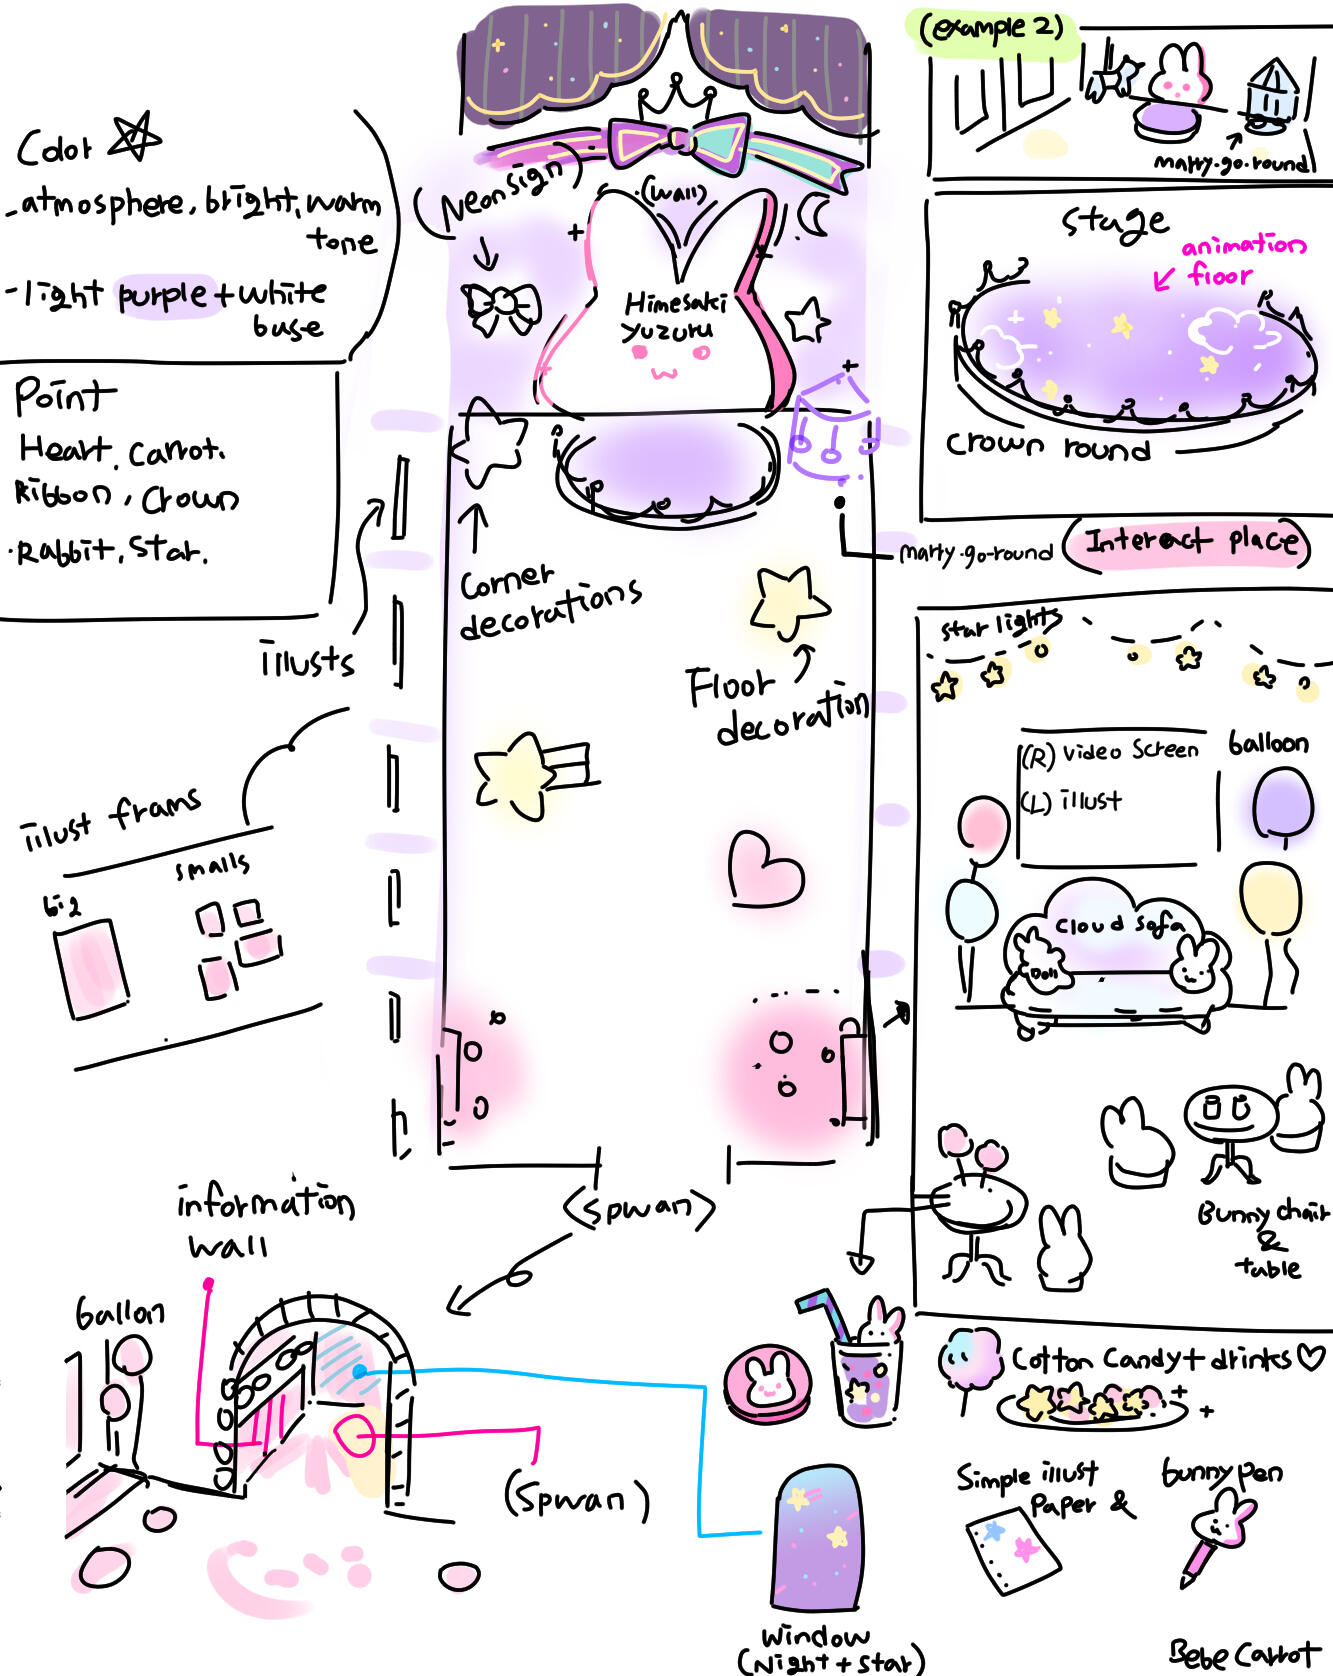 Color
- atmosphere, bright, warm
tone
- light purple + white
base
Point
Heart, Carrot.
Ribbon, Crown
·Rabbit, Star.
illusts
illust frams
big
smalls
(Neonsign)
(wall)
Himesaki
Yuzuru
Corner
decorations
Floor
decoration
marry-go-round
<spwan>
(example 2)
marry-go-round
stage
animation
floor
crown round
Interact place
star lights
(R) video Screen
(L) illust
balloon
cloud sofa
Doll
Bunny chair
&
table
Cotton Candy + drinks♡
Simple illust
Paper &
bunny pen
information
wall
ballon
(Spwan)
window
(Night + Star)
Bebe Carrot